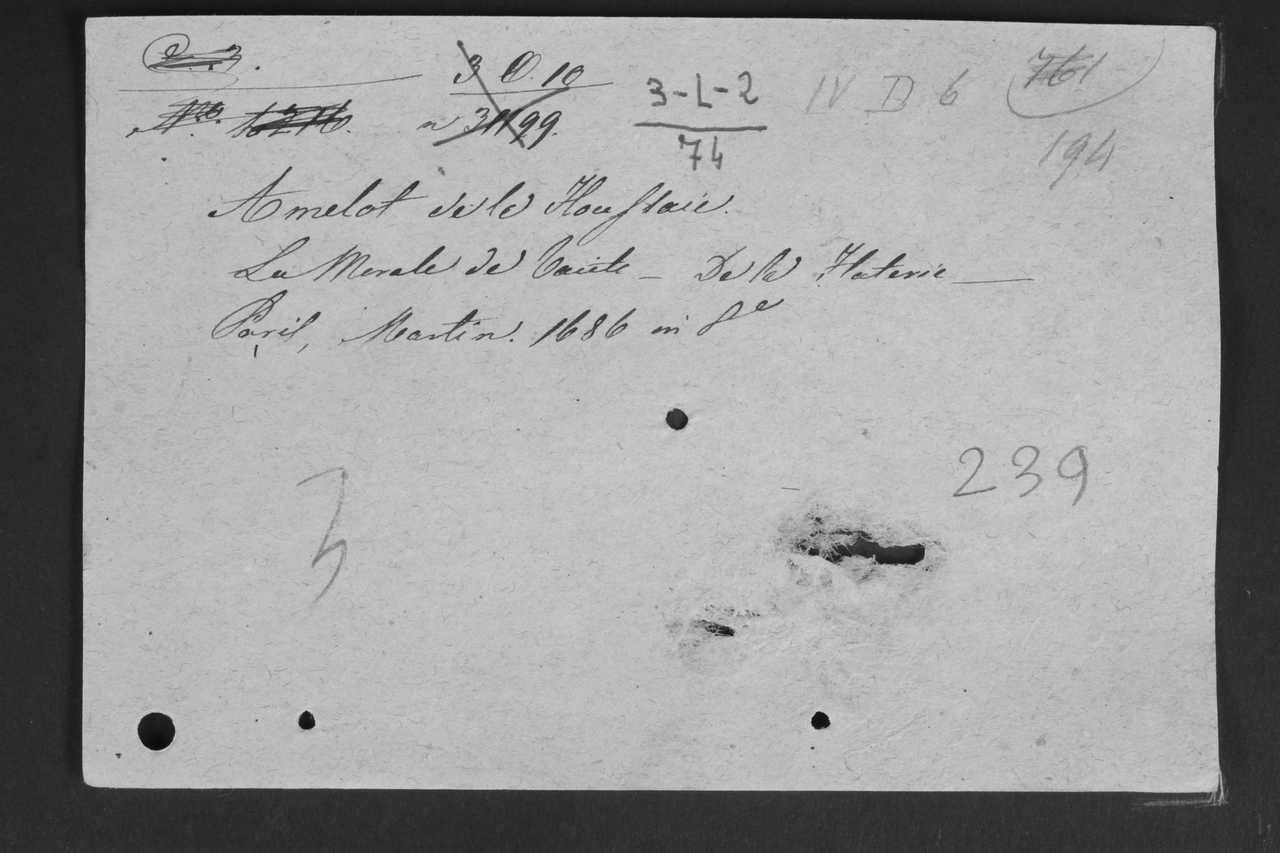 3 O. 10
n 31199.
3-L-2
74
IV D 6
761
194
Amelot de la Houssaie.
La Morale de Tacite — De la Flaterie —
Paris, Martin. 1686 in 8e
239
3